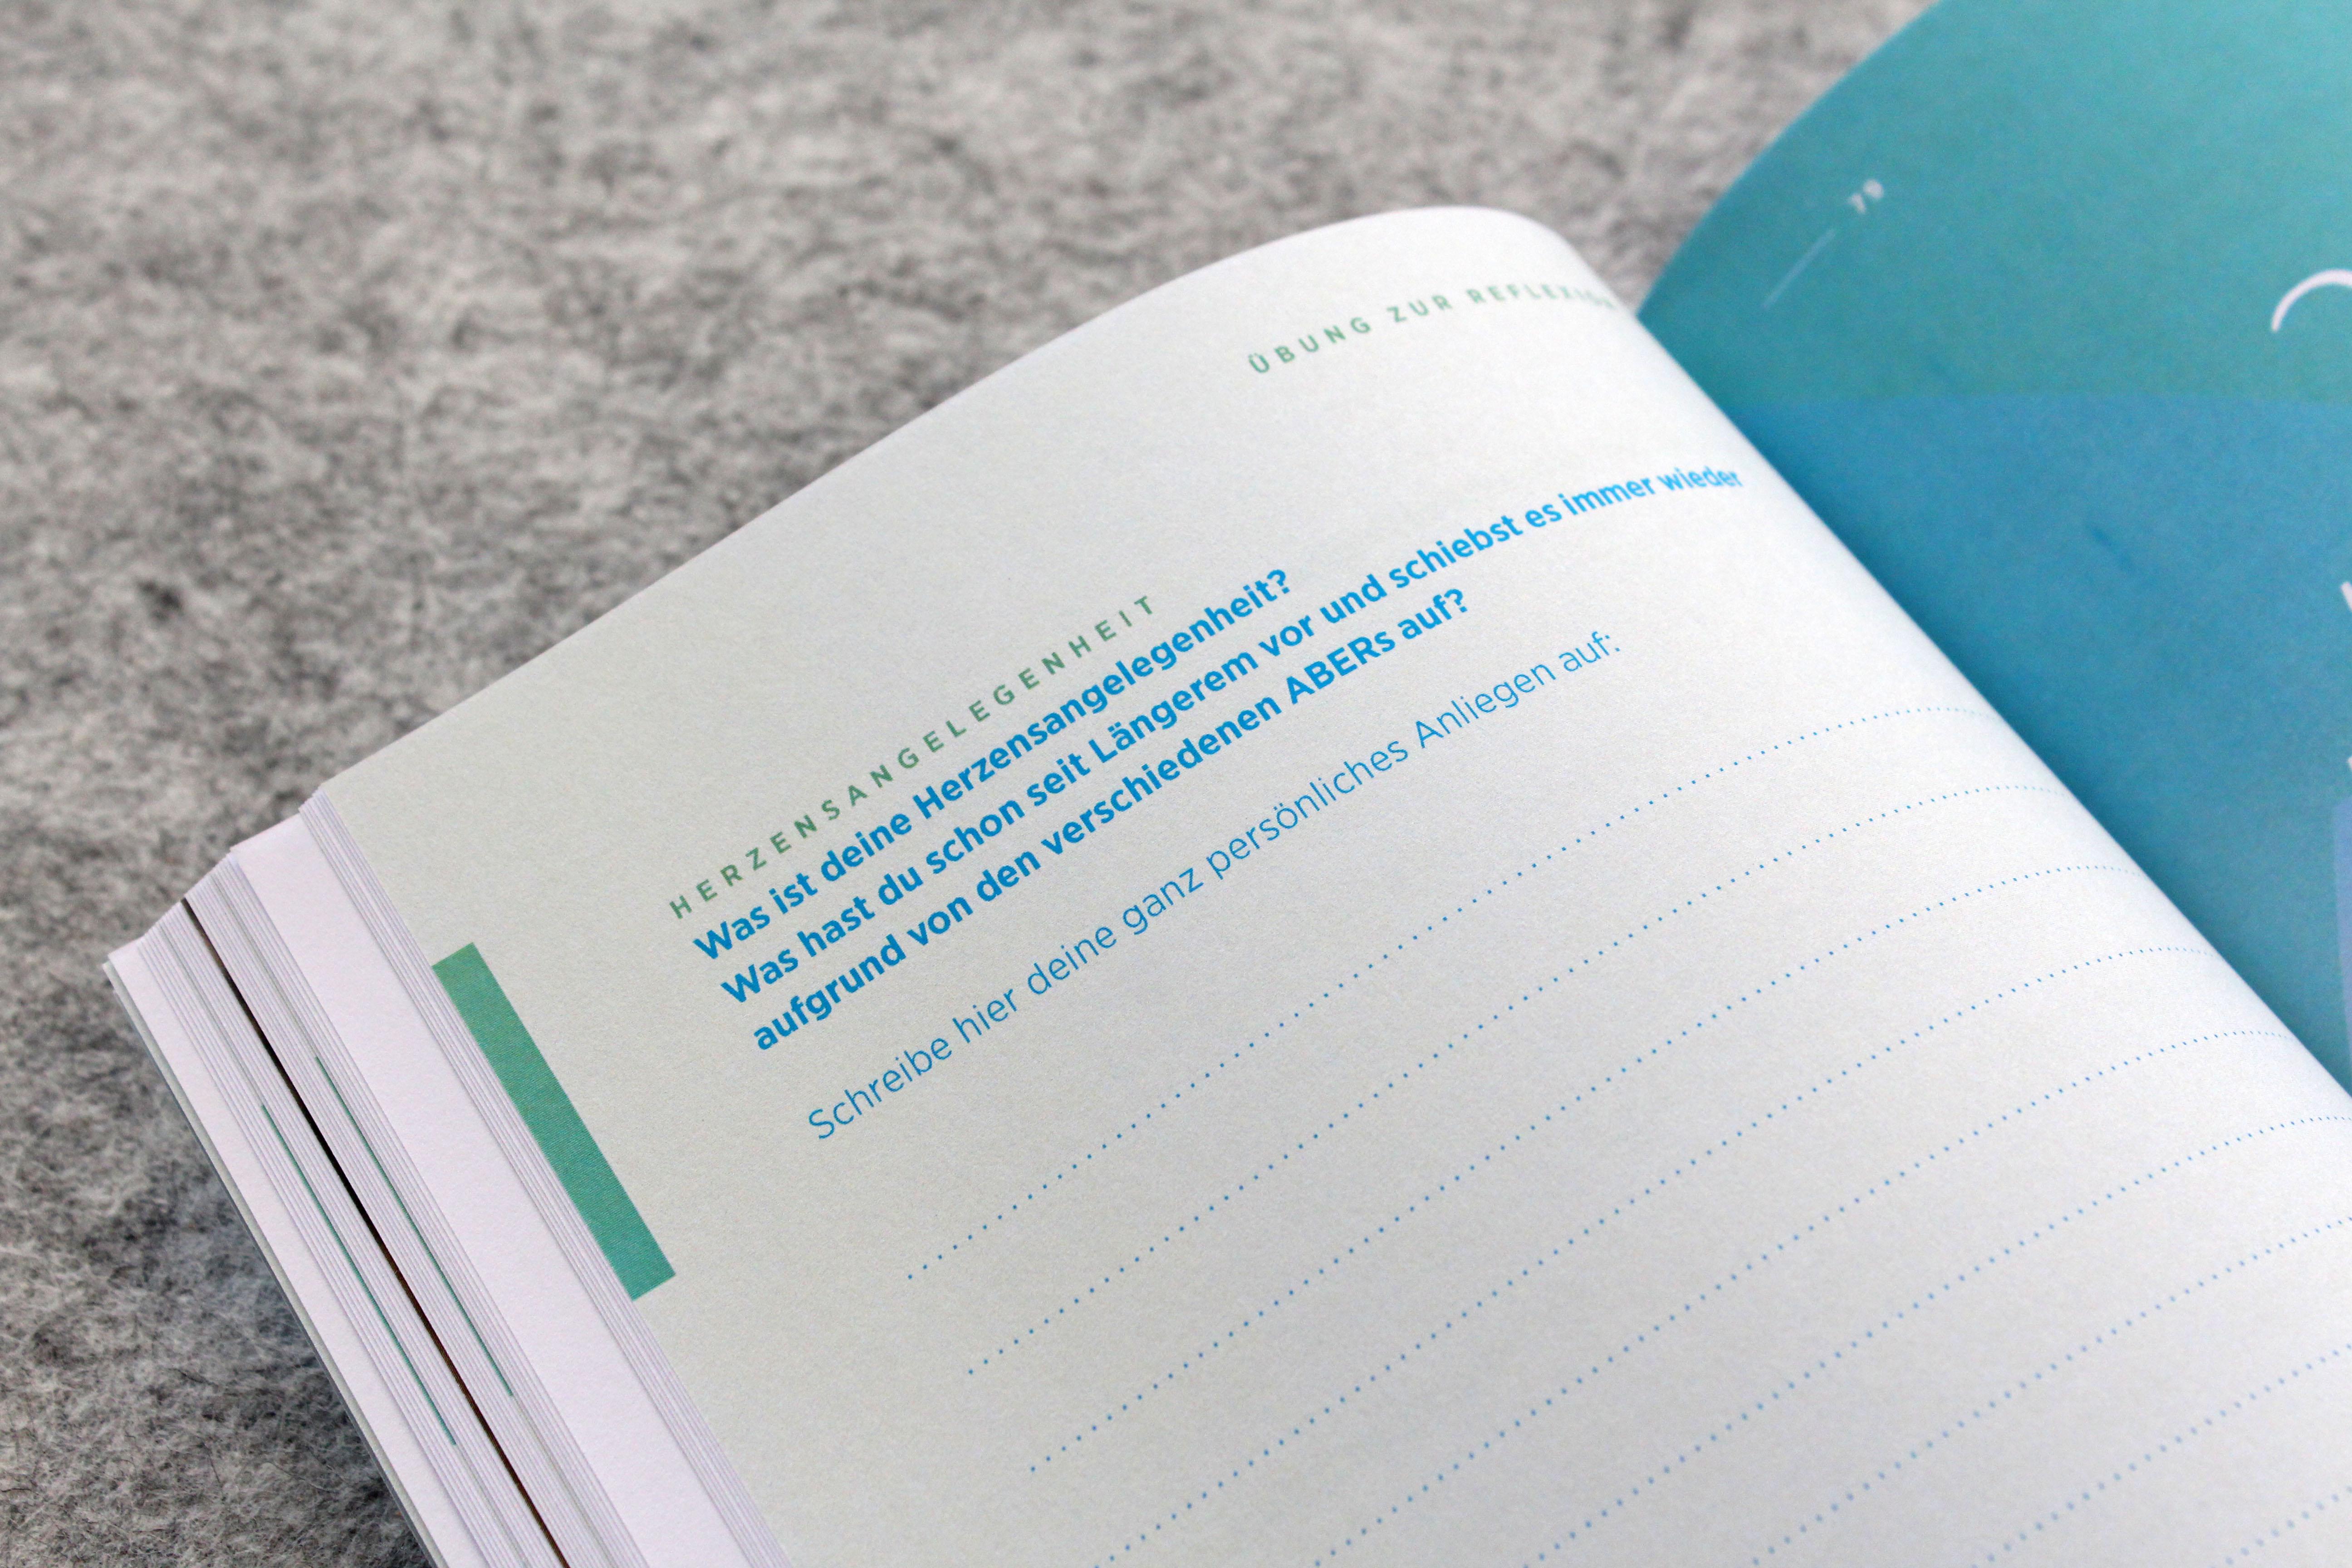 ÜBUNG ZUR REFLEXION
HERZENSANGELEGENHEIT
Was ist deine Herzensangelegenheit?
Was hast du schon seit Längerem vor und schiebst es immer wieder
aufgrund von den verschiedenen ABERs auf?
Schreibe hier deine ganz persönliches Anliegen auf:
79